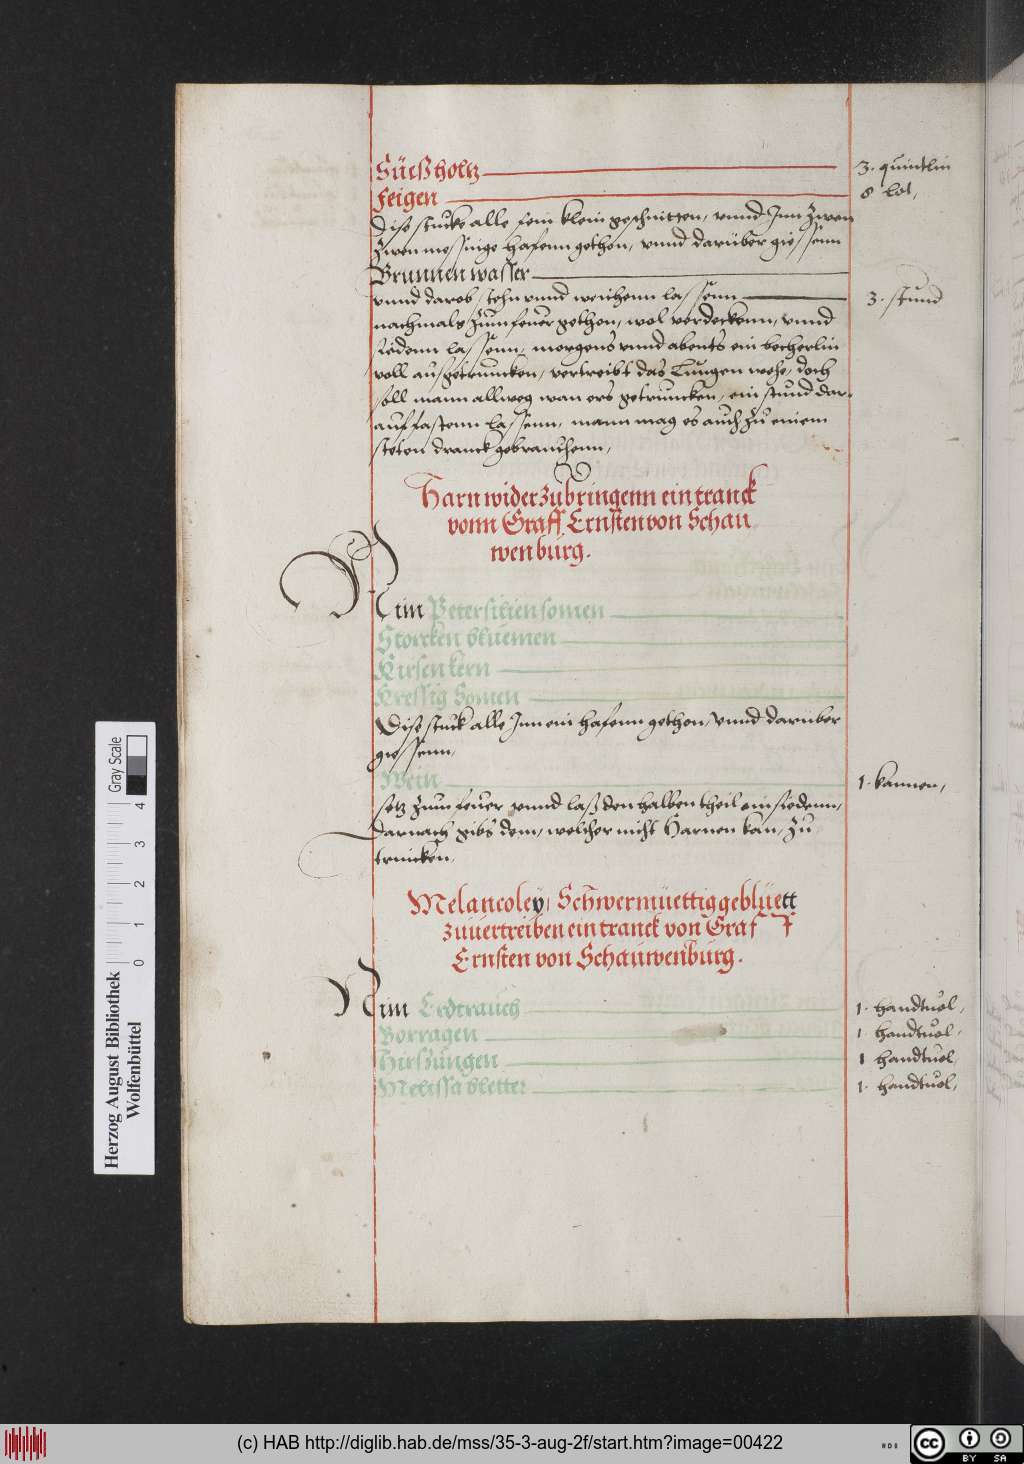 Süeßholtz 3. quintlin
Feigen 8 Lot,
Dise stucke alle fein klein geschnitten, vnnd Inn zwen
zwen messinge hafenn gethon, vnnd darüber giessenn
Brunnen wasser
vnnd darob stehn vnnd weichenn lassenn 3. stund
nachmals zum feuer gethon, wol verdeckenn, vnnd
siedenn lassenn, morgens vnnd abents ein becherlin
voll ausgetrunken, vertreibt das Lungen wehe, doch
soll mann allweg wan ers getruncken, ein stund dar,
auff fastenn lassenn, mann mag es auch zu einem
steten dranck gebrauchenn,
Harn wider zubringenn ein tranck
vonn Graff Ernsten von Schau
wenburg.
Nim Petersilien somen
Storcken bluemen
Kirsenkern
Kressig Somen
Dise stuck alle Inn ein hafenn gethon, vnnd darüber
giessenn,
Wein 1. kannen,
setz zum feuer vnnd laß den halben theil einsiedenn,
darnach gibs dem, welcher nicht Harnen kan, zu
trincken,
Melancoley, Schwermüettig geblüett
zuuertreiben ein tranck von Graf
Ernsten von Schauwenburg.
Nim Erdtrauch 1. handtuol,
Borragen 1 handtuol,
Hirszungen 1 handtuol,
Melissa bletter 1. handtuol,
Herzog August Bibliothek
Wolfenbüttel
0 1 2 3 4
Gray Scale
(c) HAB http://diglib.hab.de/mss/35-3-aug-2f/start.htm?image=00422
cc BY SA